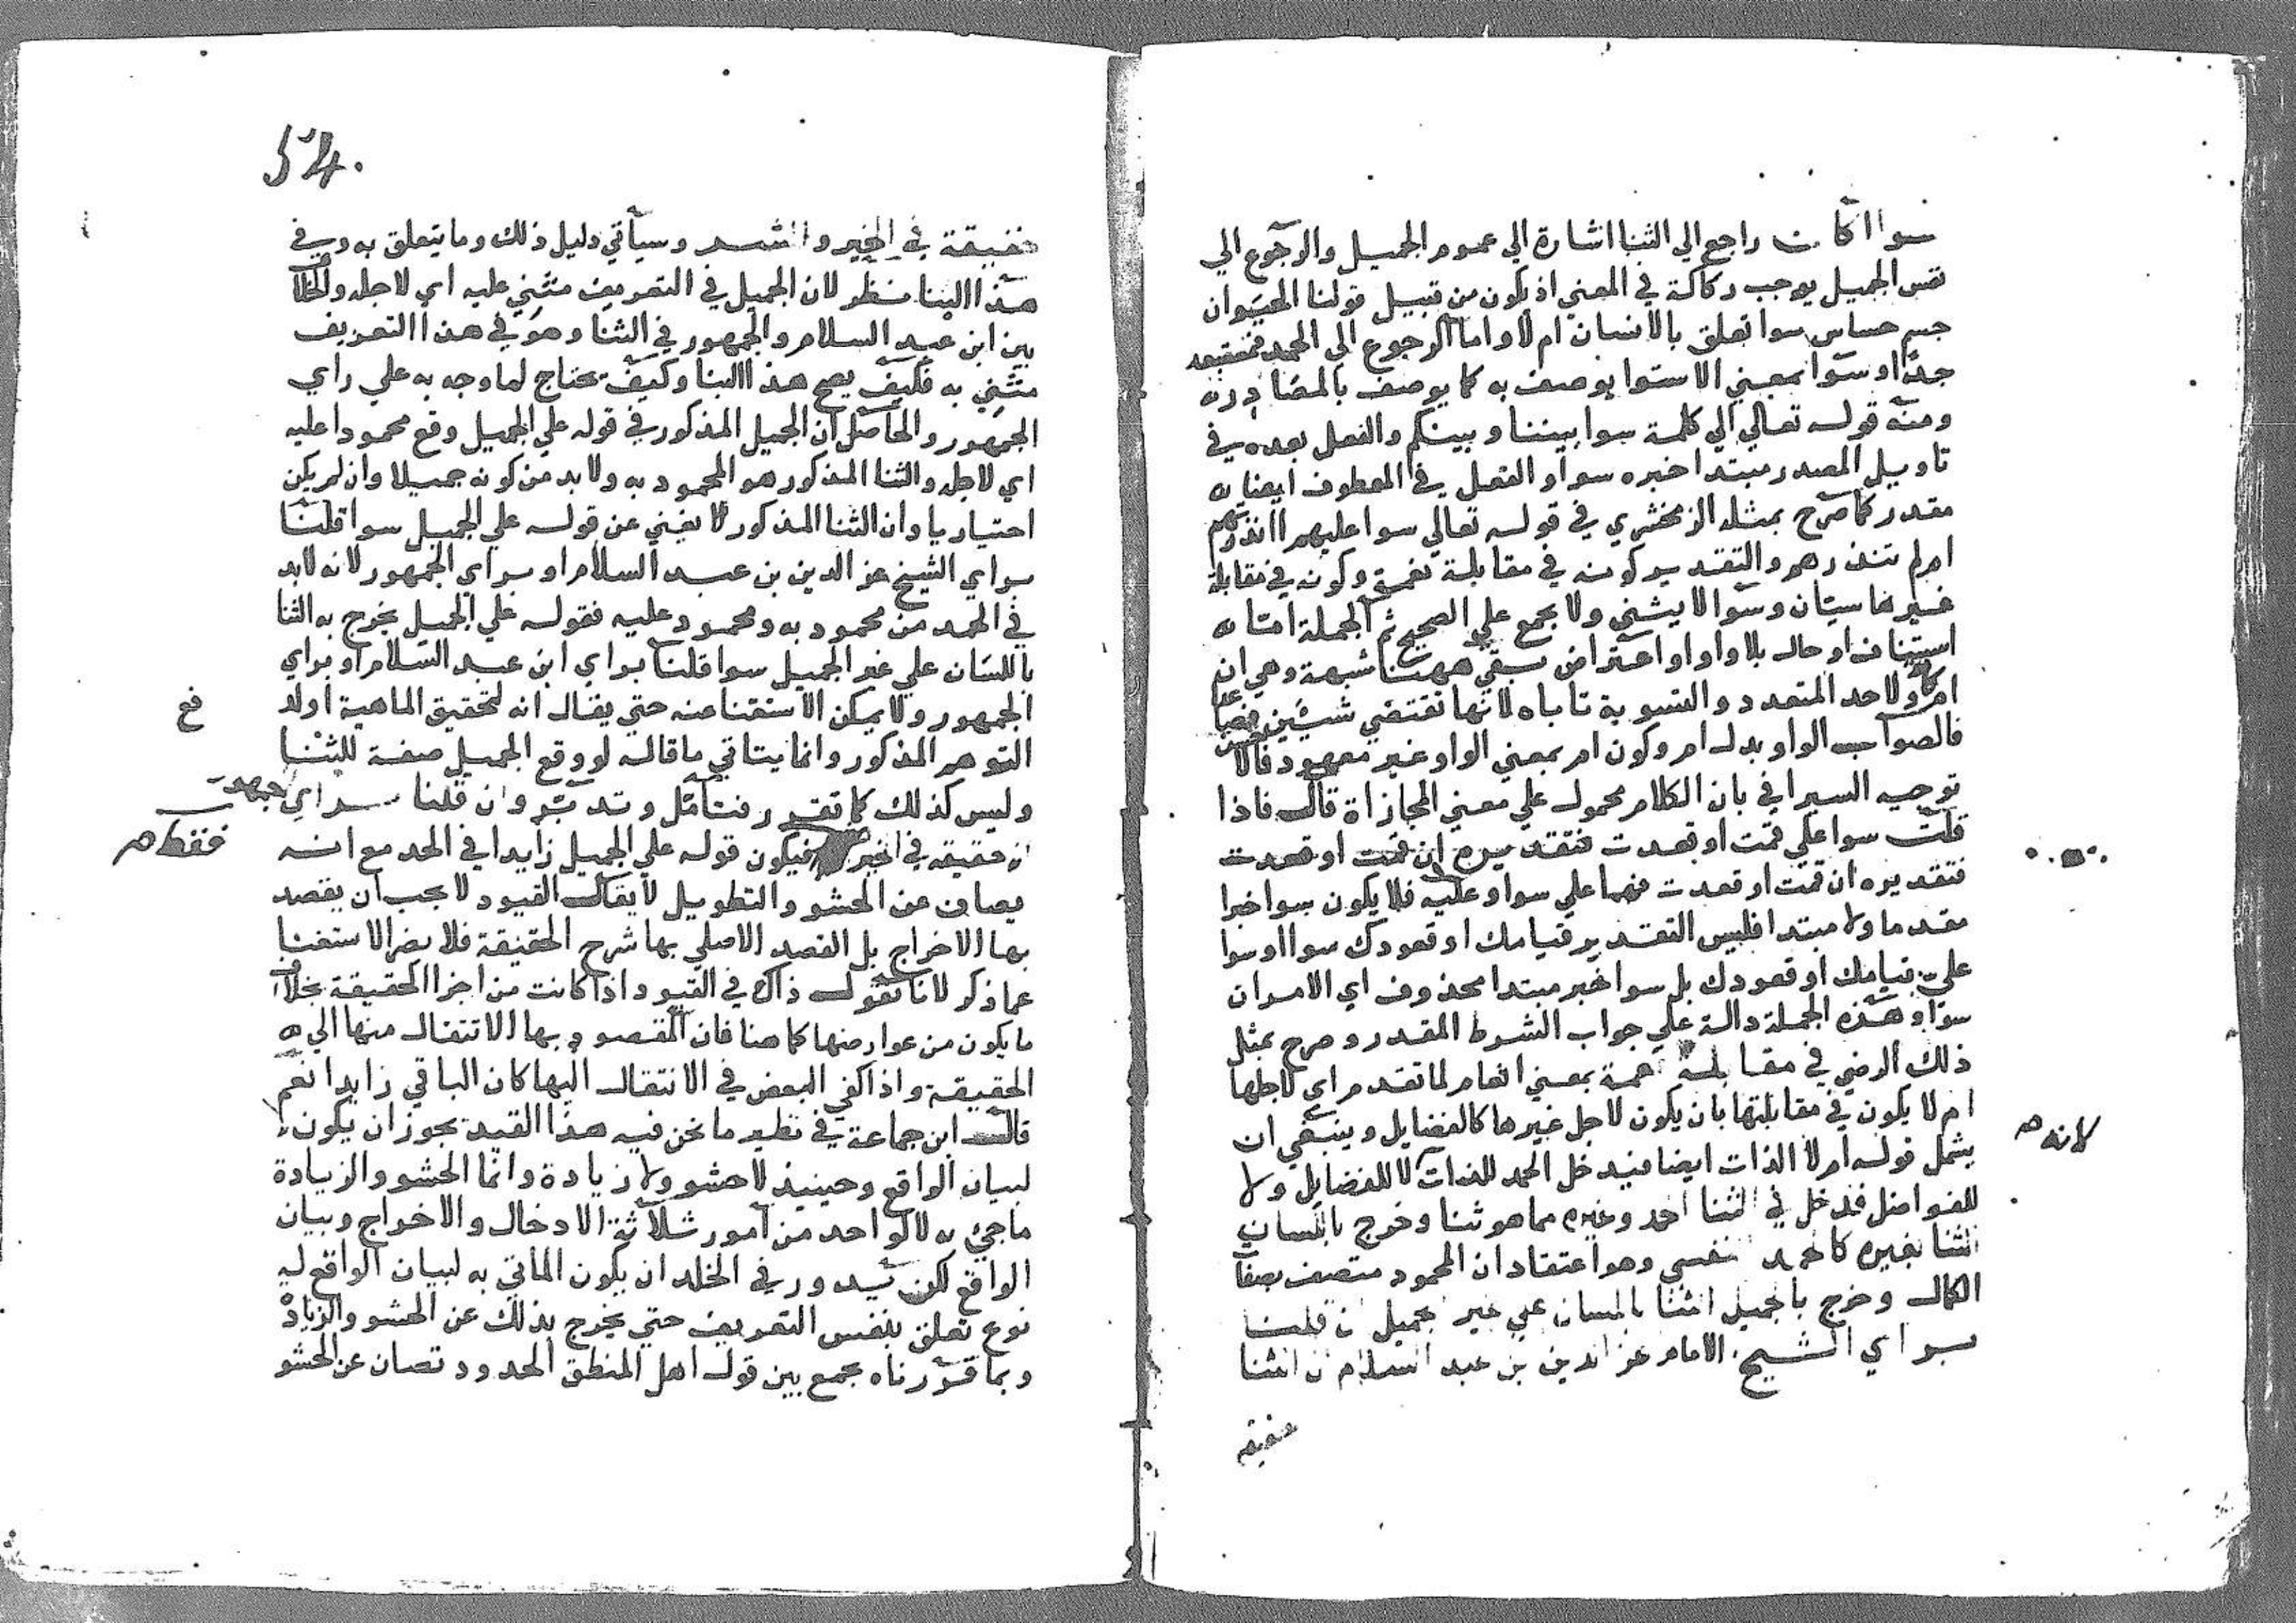 سوا اكانت راجع الي الثنا اشارة الي عموم الجميل والرجوع الي
نفس الجميل يوجب ركاكة في المعني اذ يكون من قبيل قولنا الحيوان
جسم حساس سوا تعلق بالانسان ام لا واما الرجوع الي الحمد فمتعقبه
جدا وسوا بمعني الاستوا يوصف به كما يوصف بالمصادر
ومنه قوله تعالي الي كلمة سوا بيننا وبينكم والفعل بعده في
تاويل المصدر مبتدا خبره سوا والفعل في المعطوف ايضا
مقدر كما صرح بمثله الزمخشري في قوله تعالي سوا عليهم اانذرتهم
ام لم تنذرهم والتقدير كونه في مقابلة نعمة وكونه في مقابلة
غيرها سيان وسوا لا يثني ولا يجمع علي الصحيح ثم الجملة اما
استيناف او حال بلا واو او اعتراض بقي ههنا شبهة وهي ان
ام لاحد المتعدد والتسوية تاباه لانها تقتضي شيئين فصاعدا
فالصواب الواو بدل ام وكون ام بمعني الواو غير معهود فالاحسن
توجيه السيرافي بان الكلام محمول علي معني المجازاة قال فاذا
قلت سوا علي قمت او قعدت فتقديره ان قمت او قعدت
فتقديره ان قمت او قعدت فهما علي سوا وعليه فلا يكون سوا خبرا
مقدما ولا مبتدا فليس التقدير قيامك او قعودك سوا او سوا
علي قيامك او قعودك بل سوا خبر مبتدا محذوف اي الامران
سوا وهذه الجملة دالة علي جواب الشرط المقدر وصرح بمثل
ذلك الرضي في مقابلة نعمة بمعني انعام لما تقدم اي لاجلها
ام لا يكون في مقابلتها بان يكون لاجل غيرها كالفضايل وينبغي ان
لانه
يشمل قوله ام لا الذات ايضا فيدخل الحمد للذات لا للفضايل ولا
للفواضل فدخل في الثنا الحمد وغيره مما هو ثنا وخرج باللسان
الثنا بغيره كالحمد النفسي وهو اعتقاد ان المحمود متصف بصفات
الكمال وخرج بالجميل الثنا باللسان علي غير الجميل ان قلنا
براي الشيخ الامام عز الدين بن عبد السلام ان الثنا
حقيقة
حقيقة في الخير والشر وسياتي دليل ذلك وما يتعلق به وفي
هذا البنا نظر لان الجميل في التعريف مثني عليه اي لاجله والخلاف
بين ابن عبد السلام والجمهور في الثنا وهو في هذا التعريف
مثني به فكيف يصح هذا البنا وكيف يحتاج لما وجه به علي راي
الجمهور والحاصل ان الجميل المذكور في قوله علي الجميل وقع محمودا عليه
اي لاجله والثنا المذكور هو المحمود به ولا بد من كونه جميلا وان لم يكن
اختياريا وان الثنا المذكور لا يغني عن قوله علي الجميل سوا قلنا
براي الشيخ عز الدين بن عبد السلام او براي الجمهور لانه لابد
في الحمد من محمود به ومحمود عليه فقوله علي الجميل يخرج به الثنا
باللسان علي غير الجميل سوا قلنا براي ابن عبد السلام او براي
الجمهور ولا يمكن الاستغنا عنه حتي يقال انه لتحقيق الماهية او لدفع
التوهم المذكور وانما يتاتي ما قاله لو وقع الجميل صفة للثنا
وليس كذلك كما تقرر فتامل وتدبر وان قلنا براي الجمهور
انه حقيقة في الخير فقط فيكون قوله علي الجميل زايدا في الحد مع انه
يصان عن الحشو والتطويل لا يقال القيود لا يجب ان يقصد
بها الاخراج بل القصد الاصلي بها شرح الحقيقة فلا يضر الاستغنا
عما ذكر لانا نقول ذاك في القيود اذا كانت من اجزا الحقيقة بخلاف
ما يكون من عوارضها كما هنا فان المقصود بها الانتقال منها الي
الحقيقة واذا كفي البعض في الانتقال اليها كان الباقي زايدا نعم
قال ابن جماعة في نظير ما نحن فيه هذا القيد يجوز ان يكون
لبيان الواقع وحينيذ لا حشو ولا زيادة وانما الحشو والزيادة
ما جيء به لا لواحد من امور ثلاثة الادخال والاخراج وبيان
الواقع لكن يدور في الخلد ان يكون الماتي به لبيان الواقع له
نوع تعلق بنفس التعريف حتي يخرج بذلك عن الحشو والزيادة
وبما قررناه يجمع بين قول اهل المنطق الحدود تصان عن الحشو